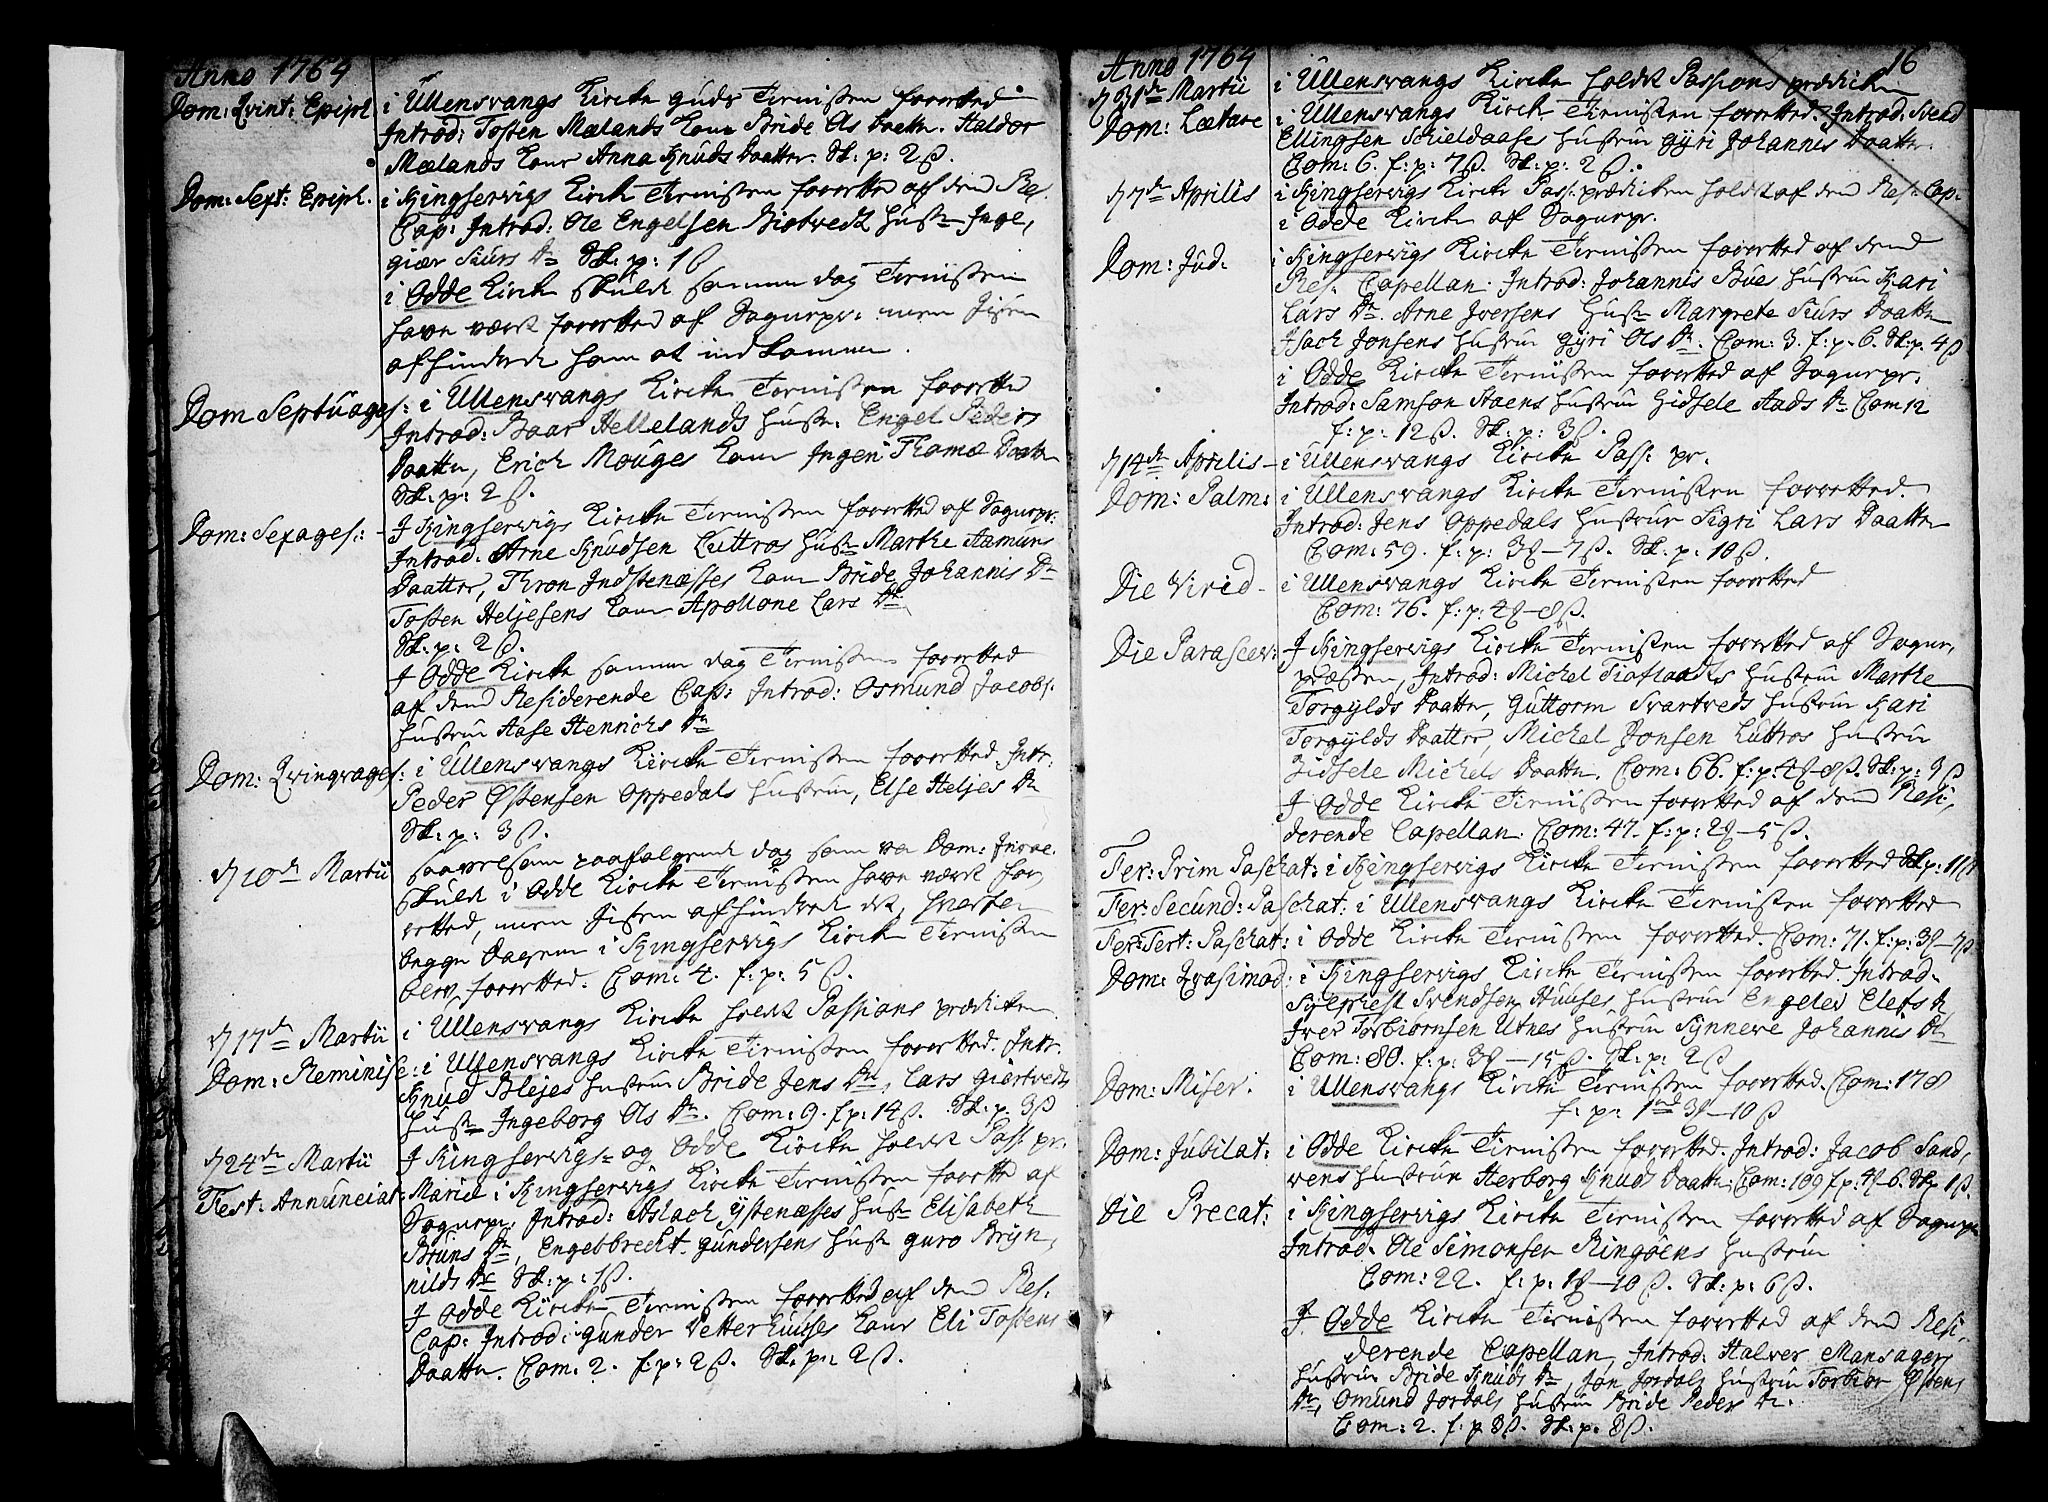 Anno 1764
Dom: Qvint: Epiph. i Ullensvangs Kirche Guds Tienisten forretted
Introd: Tosten Mælands Kone Bride Ols Daatter. Haldor
Mælands Kone Anna Knuds Daatter. Sk: p: 2 ß.
Dom: Sept: Epiph. i Kingservigs Kirche Tienisten forretted af dend Res.
Cap: Introd: Ole Engelsen Biotvedt Hust: Inge,
giær Siurs Dr Sk: p: 1 ß
i Odde Kirche skulde samme dag Tienisten
have vært forretted af Sogneprs: men Jisen
afhindrede ham at ind komme.
Dom Septuages: i Ullensvangs Kirche Tienisten forretted
Introd: Baar Hellelands Hustr. Engel Peders
Daatter, Erich Mouges Kone Ingen Thomæ Daatter
Sk: p: 2 ß.
Dom: Sexages: - I Kingservigs Kirche Tienisten forretted af Sognepr:
Introd: Arne Knudsen Luttros Hust: Marthe Aamuns
Daatter, Thron Indstenæsses Kone Bride Johannis Dr
Tosten Heljesens Kone Apollone Lars Dr
Sk: p: 2 ß.
I Odde Kirche samme dag Tienisten forretted
af dend Residerende Cap: Introd: Osmund Jacobs:
Hustrue Aase Henrichs Dr
Dom: Qvinqvages: i Ullensvangs Kirche Tienisten forretted Intr:
Peder Østensen Oppedals Hustrue, Else Heljes Dr
Sk: p: 3 ß.
d 10de Martii saavelsom paafølgende dag som va Dom: Invoc.
skulde i Odde Kirche Tienisten have vært for,
retted, men Jisen afhindrede det, hvorfor
begge Dagene i Kingservigs Kirche Tienisten
blev forretted. Com: 4. f: p: 5 ß.
d 17de Martii i Ullensvangs Kirche holdt Passions prædicken
Dom: Reminisc: i Ullensvangs Kirche Tienisten forretted. Intr:
Knud Blejes Hustrue Bride Jens Dr, Lars Giertvedts
Hust: Ingeborg Ols Dr. Com: 9. f p: 14 ß. Sk: p: 3 ß
d 24de Martii I Kingservigs- og Odde Kirche holdt Pass: pr:
Fest: Annunciat: Mariæ i Kingservigs Kirche Tienisten forretted af
Sognepr: Introd: Aslach Ystenæsses Hust: Elisabeth
Bruns Dr, Engebbrecht Gundersens Hust: Guro Bryn,
nilds Dr Sk: p: 1 ß.
I Odde Kirche Tienisten forretted af dend Res:
Cap: Introd: Gunder Vetterhuuses Kone Eli Tostens
Daatter. Com: 2. f: p: 2 ß. Sk: p: 2 ß.
Anno 1764 16
d 31de Martii i Ullensvangs Kirche holdt Passions prædicken
Dom: Lætare i Ullensvangs Kirche Tienisten forretted. Introd: Svend
Ellingsen Schieldaases Hustrue Gyri Johannis Daatter.
Com: 6. f: p: 7 ß. Sk: p: 2 ß.
d 7de Aprilis i Kingservigs Kirche Pass: prædicken holdt af dend Res: Cap:
i Odde Kirche af Sognepr.
Dom: Jud. i Kingservigs Kirche Tienisten forretted af dend
Res: Capellan. Introd: Johannis Bues Hustrue Kari
Lars Dr. Arne Iversens Hust: Margrete Siurs Daatter
Isach Jonsens Hustrue Gyri Ols Dr. Com: 3. f: p. 6. Sk: p. 4 ß
i Odde Kirche Tienisten forretted af Sognepr.
Introd: Samson Staens Hustrue Gidsele Aads Dr Com 12
f: p: 12 ß. Sk: p: 3 ß.
d 14de Aprilis - i Ullensvangs Kirche Pass: pr.
Dom: Palm: i Ullensvangs Kirche Tienisten forretted.
Introd: Jens Oppedals Hustrue Sigri Lars Daatter
Com: 59. f: p: 3 - 7 ß. Sk: p: 10 ß.
Die Virid - i Ullensvangs Kirche Tienisten forretted
Com: 76. f: p: 4 - 8 ß.
Die Parascev: I Kingservigs Kirche Tienisten forretted af Sogne,
præsten, Introd: Michel Tioflaades Hustrue Marthe
Torgylds Daatter, Guttorm Svartveds Hustrue Kari
Torgylds Daatter, Michel Jonsen Luttros Hustrue
Gidsele Michels Daatter. Com: 66. f: p: 4 - 8 ß. Sk: p: 9 ß
I Odde Kirche Tienisten forretted af dend Resi,
derende Capellan. Com: 47. f: p: 2 - 5 ß.
Fer: Prim Paschat: i Kingservigs Kirche Tienisten forretted Sk p: 11 ß
Fer: Secund: Paschat: i Ullensvangs Kirche Tienisten forretted
Fer: Tert: Paschat: i Odde Kirche Tienisten forretted. Com: 71. f: p: 3 - 7 ß
Dom: Qvasimod: i Kingservigs Kirche Tienisten forretted. Introd.
Svendsen Huuses Hustrue Engelev Elefs Dr
Iver Torbiørnsen Utnes Hustrue Synneve Johannis Dr
Com: 80. f: p: 3 - 15 ß. Sk: p: 2 ß
Dom: Miser. i Ullensvangs Kirche Tienisten forretted. Com: 178
f: p: 1 3 - 10 ß
Dom: Jubilat: i Odde Kirche Tienisten forretted. Introd: Jacob Sand,
vens Hustrue Herborg Knuds Daatter. Com: 109 f p: 4 - 6. Sk p 1 ß.
Die Precat: i Kingservigs Kirche Tienisten forretted af Sognepr
Introd. Ole Simonsen Ringøens Hustrue
Com: 22. f: p: 1 - 10 ß. Sk: p: 6 ß.
I Odde Kirche Tienisten forretted af dend Resi,
derende Capellan, Introd: Halver Mansagers
Hustrue Bride Knuds Dr, Jon Jordals Hustrue Torbior Østens
Dr, Omund Jordals Hustrue Bride Peders Dr.
Com: 2. f: p 8 ß. Sk: p: 8 ß.